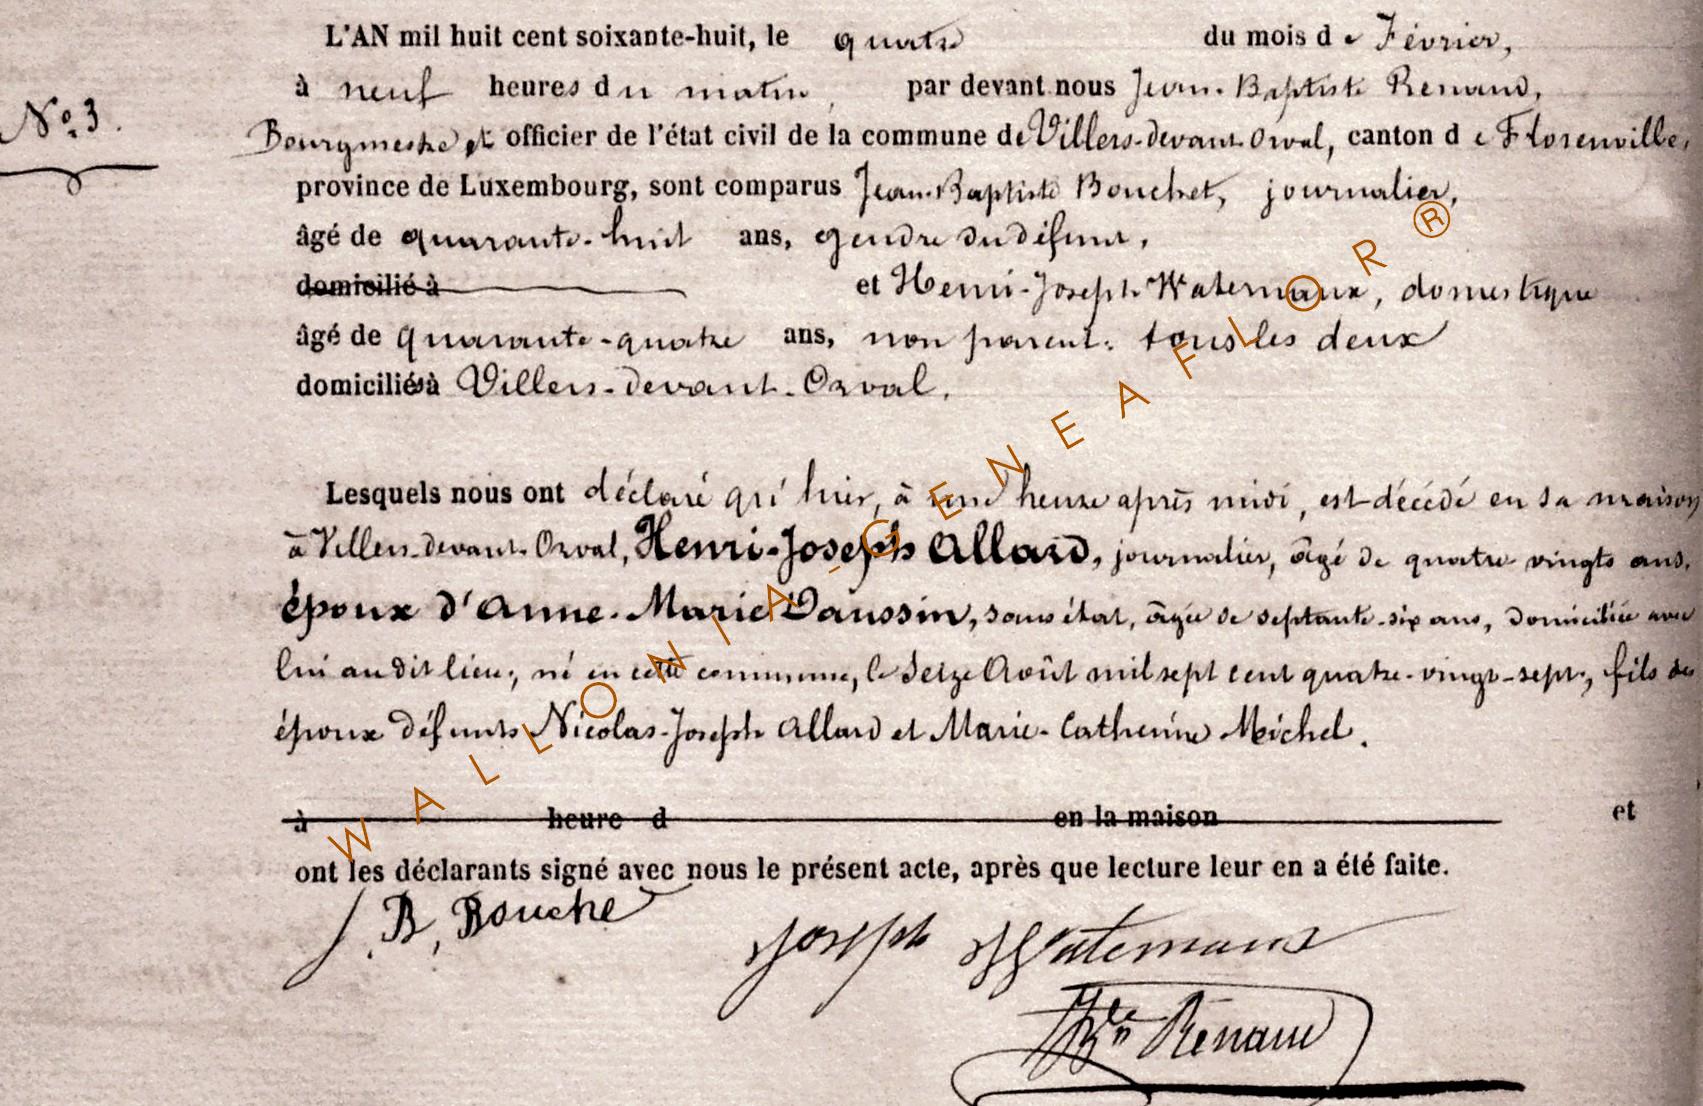 L'AN mil huit cent soixante-huit, le quatre du mois de Février,
à neuf heures du matin, par devant nous Jean-Baptiste Renaud,
N° 3.
Bourgmestre et officier de l'état civil de la commune de Villers-devant-Orval, canton de Florenville,
province de Luxembourg, sont comparus Jean-Baptiste Bouchet, journalier,
âgé de quarante-huit ans, gendre du défunt,
domicilié à et Henri-Joseph Waternaux, domestique
âgé de quarante-quatre ans, non parent, tous les deux
domiciliés à Villers-devant-Orval.
Lesquels nous ont déclaré qu'hier, à une heure après midi, est décédé en sa maison
à Villers-devant-Orval, Henri-Joseph Allard, journalier, âgé de quatre vingts ans,
époux d'Anne-Marie Daussin, sans état, âgée de septante-six ans, domiciliée avec
lui au dit lieu; né en cette commune, le seize Août mil sept cent quatre-vingt-sept, fils des
époux défunts Nicolas-Joseph Allard et Marie-Catherine Michel.
à heure d en la maison et
ont les déclarants signé avec nous le présent acte, après que lecture leur en a été faite.
J. B, Bouche
Joseph Waternaux
Renaud
WALLONIA-GENEAFLOR®